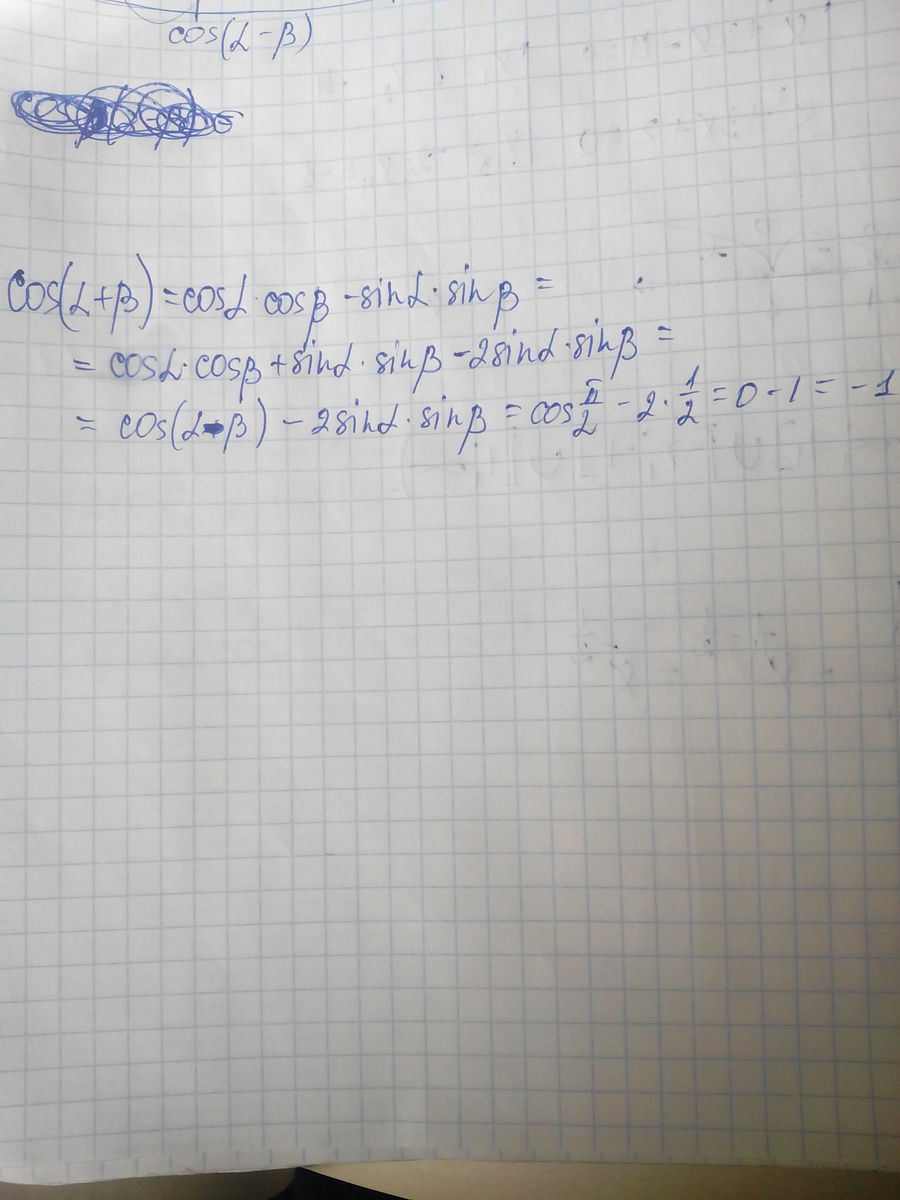 cos(α-β)
cos(α+β)=cosα·cosβ-sinα·sinβ=
= cosα·cosβ+sinα·sinβ-2sinα·sinβ=
= cos(α-β)-2sinα·sinβ=cos π/2 -2·1/2=0-1=-1